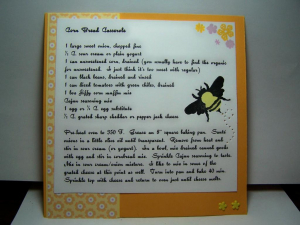 Corn Bread Casserole
1 large sweet onion, chopped fine
½ C. sour cream or plain yogurt
1 can unsweetened corn, drained (you usually have to find the organic
for unsweetened. I just think it's too sweet with regular)
1 can black beans, drained and rinsed
1 can diced tomatoes with green chiles, drained
1 box Jiffy corn muffin mix
Cajun seasoning mix
1 egg or ¼ C. egg substitute
½ C. grated sharp cheddar or pepper jack cheese
Pre-heat oven to 350 F. Grease an 8" square baking pan. Sauté
onion in a little olive oil until transparent. Remove from heat and
stir in sour cream (or yogurt). In a bowl, mix drained canned goods
with egg and stir in cornbread mix. Sprinkle Cajun seasoning to taste.
Mix in sour cream/onion mixture. I like to mix in some of the
grated cheese at this point as well. Turn into pan and bake 40 min.
Sprinkle top with cheese and return to oven just until cheese melts.